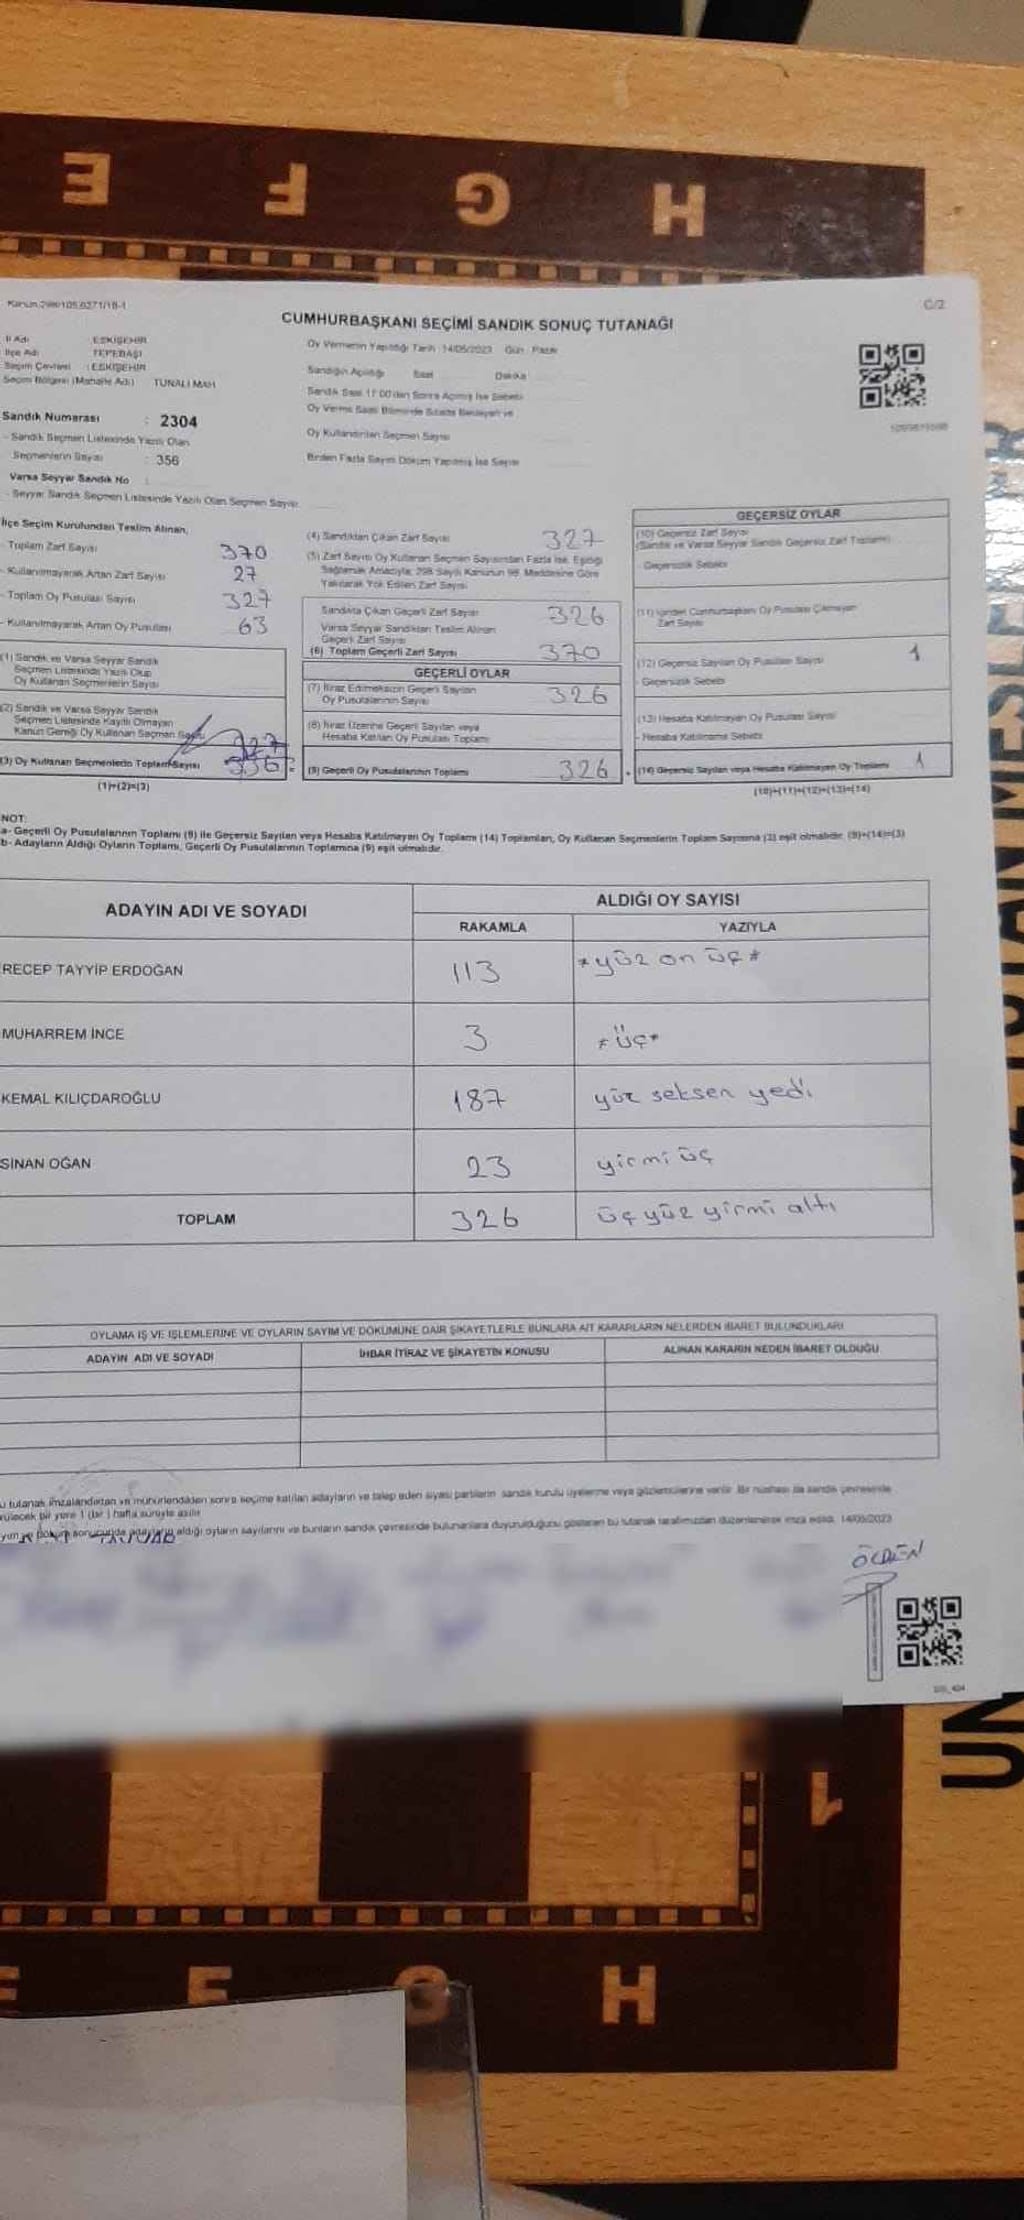 E F G H
Kanun:298/105,6271/18-1
C/2
CUMHURBAŞKANI SEÇİMİ SANDIK SONUÇ TUTANAĞI
İl Adı ESKİŞEHİR
İlçe Adı TEPEBAŞI
Seçim Çevresi : ESKİŞEHİR
Seçim Bölgesi (Mahalle Adı) TUNALI MAH
Oy Vermenin Yapıldığı Tarih : 14/05/2023 Gün : Pazar
Sandığın Açıldığı Saat Dakika
Sandık Saat 17:00'den Sonra Açılmış İse Sebebi
Oy Verme Saati Bitiminde Sırada Bekleyen ve
Oy Kullandırılan Seçmen Sayısı
Birden Fazla Sayım Döküm Yapılmış İse Sayısı
Sandık Numarası : 2304
- Sandık Seçmen Listesinde Yazılı Olan
Seçmenlerin Sayısı : 356
Varsa Seyyar Sandık No :
- Seyyar Sandık Seçmen Listesinde Yazılı Olan Seçmen Sayısı
İlçe Seçim Kurulundan Teslim Alınan,
- Toplam Zarf Sayısı 370
- Kullanılmayarak Artan Zarf Sayısı 27
- Toplam Oy Pusulası Sayısı 327
- Kullanılmayarak Artan Oy Pusulası 63
(1) Sandık ve Varsa Seyyar Sandık
Seçmen Listesinde Yazılı Olup
Oy Kullanan Seçmenlerin Sayısı
(2) Sandık ve Varsa Seyyar Sandık
Seçmen Listesinde Kayıtlı Olmayan
Kanun Gereği Oy Kullanan Seçmen Sayısı
327
(3) Oy Kullanan Seçmenlerin Toplam Sayısı 356
(1)+(2)=(3)
(4) Sandıktan Çıkan Zarf Sayısı 327
(5) Zarf Sayısı Oy Kullanan Seçmen Sayısından Fazla İse, Eşitliği
Sağlamak Amacıyla, 298 Sayılı Kanunun 98. Maddesine Göre
Yakılarak Yok Edilen Zarf Sayısı
Sandıkta Çıkan Geçerli Zarf Sayısı 326
Varsa Seyyar Sandıktan Teslim Alınan
Geçerli Zarf Sayısı
(6) Toplam Geçerli Zarf Sayısı 370
GEÇERLİ OYLAR
(7) İtiraz Edilmeksizin Geçerli Sayılan
Oy Pusulalarının Sayısı 326
(8) İtiraz Üzerine Geçerli Sayılan veya
Hesaba Katılan Oy Pusulası Toplamı
(9) Geçerli Oy Pusulalarının Toplamı 326
GEÇERSİZ OYLAR
(10) Geçersiz Zarf Sayısı
(Sandık ve Varsa Seyyar Sandık Geçersiz Zarf Toplamı)
- Geçersizlik Sebebi
(11) İçinden Cumhurbaşkanı Oy Pusulası Çıkmayan
Zarf Sayısı
(12) Geçersiz Sayılan Oy Pusulası Sayısı 1
- Geçersizlik Sebebi
(13) Hesaba Katılmayan Oy Pusulası Sayısı
- Hesaba Katılmama Sebebi
(14) Geçersiz Sayılan veya Hesaba Katılmayan Oy Toplamı 1
(10)+(11)+(12)+(13)=(14)
NOT:
a- Geçerli Oy Pusulalarının Toplamı (9) ile Geçersiz Sayılan veya Hesaba Katılmayan Oy Toplamı (14) Toplamları, Oy Kullanan Seçmenlerin Toplam Sayısına (3) eşit olmalıdır. (9)+(14)=(3)
b- Adayların Aldığı Oyların Toplamı, Geçerli Oy Pusulalarının Toplamına (9) eşit olmalıdır.
ADAYIN ADI VE SOYADI ALDIĞI OY SAYISI
RAKAMLA YAZIYLA
RECEP TAYYİP ERDOĞAN 113 *yüz on üç*
MUHARREM İNCE 3 *üç*
KEMAL KILIÇDAROĞLU 187 yüz seksen yedi
SİNAN OĞAN 23 yirmi üç
TOPLAM 326 üç yüz yirmi altı
OYLAMA İŞ VE İŞLEMLERİNE VE OYLARIN SAYIM VE DÖKÜMÜNE DAİR ŞİKAYETLERLE BUNLARA AİT KARARLARIN NELERDEN İBARET BULUNDUKLARI
ADAYIN ADI VE SOYADI İHBAR İTİRAZ VE ŞİKAYETİN KONUSU ALINAN KARARIN NEDEN İBARET OLDUĞU
u tutanak imzalandıktan ve mühürlendikten sonra seçime katılan adayların ve talep eden siyasi partilerin sandık kurulu üyelerine veya gözlemcilerine verilir. Bir nüshası da sandık çevresinde
rülecek bir yere 1 (bir) hafta süreyle asılır.
yım ve döküm sonucunda adayların aldığı oyların sayılarını ve bunların sandık çevresinde bulunanlara duyurulduğunu gösteren bu tutanak tarafımızdan düzenlenerek imza edildi. 14/05/2023
UN
1
F G H